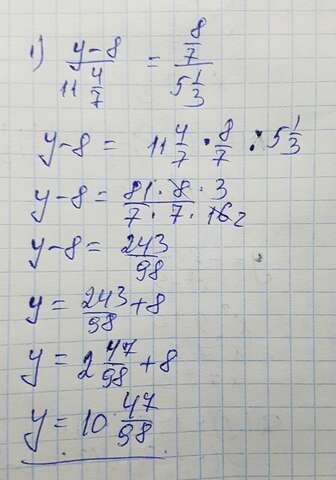 1) (y-8)/(11 4/7) = (8/7)/(5 1/3)
y-8 = 11 4/7 · 8/7 : 5 1/3
y-8 = (81 · 8 · 3)/(7 · 7 · 16 2)
y-8 = 243/98
y = 243/98 + 8
y = 2 47/98 + 8
y = 10 47/98